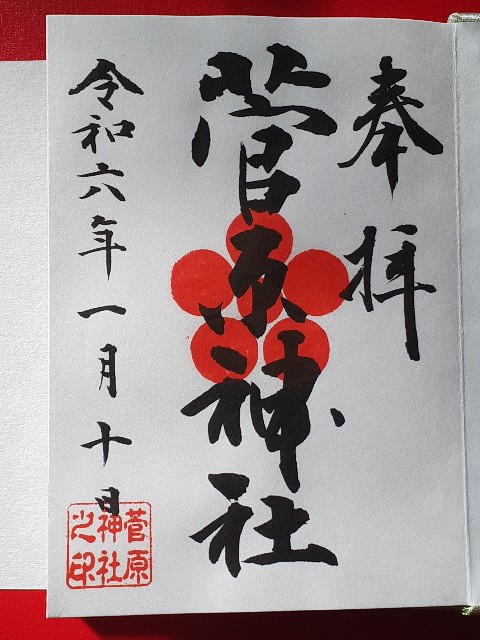 奉拝
菅原神社
令和六年一月十日
菅原
神社
之印